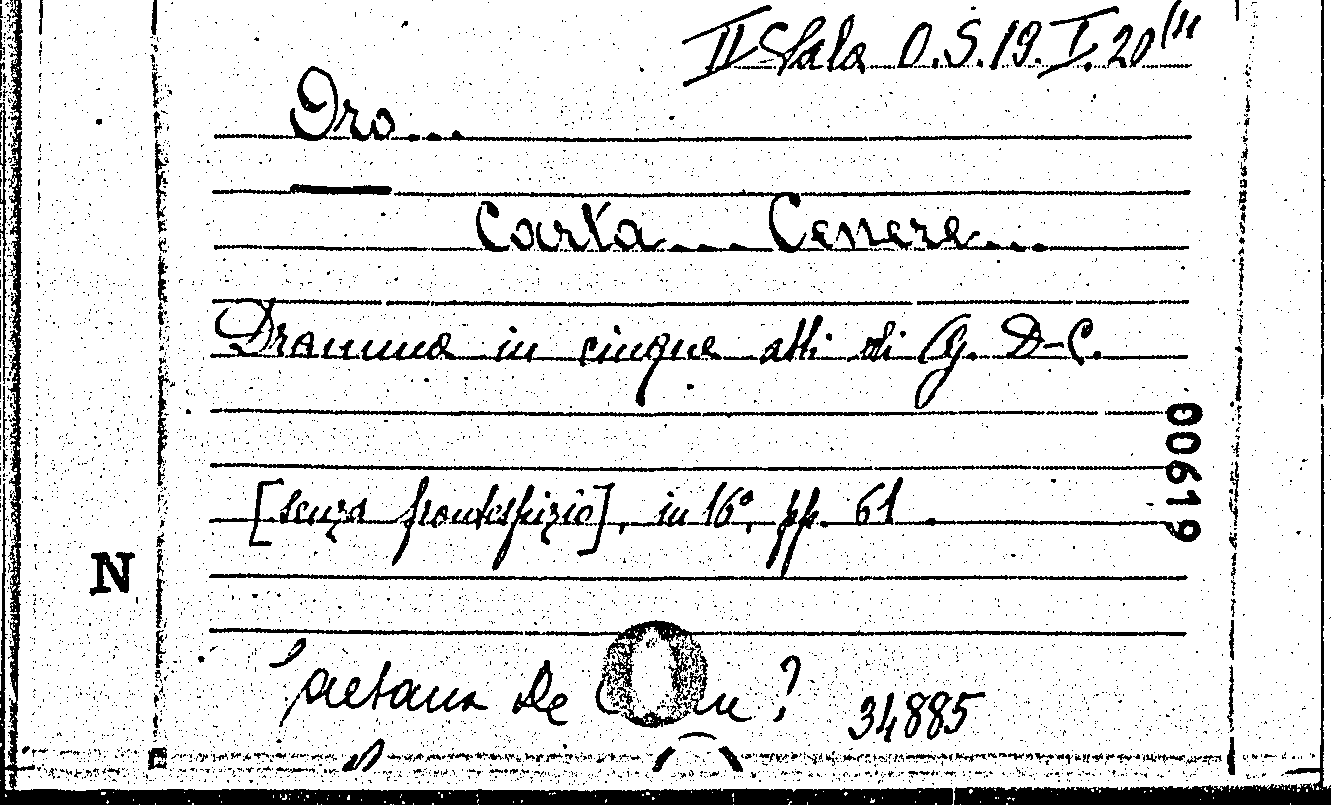 II Sala O.S. 19. I. 20
Oro...
Carta... Cenere...
Dramma in cinque atti di G. D-C.
00619
[senza frontespizio], in 16°, pp. 61.
N
Gaetano De ?
34885